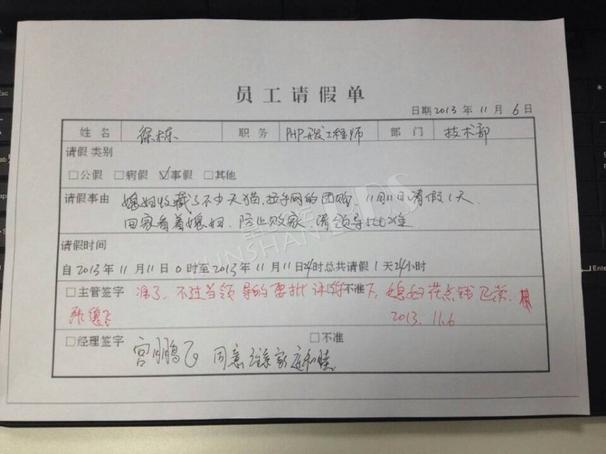 员工请假单
日期 2013 年 11 月 6 日
姓名 徐栋 职务 PHP开发工程师 部门 技术部
请假类别
□公假 □病假 ☑事假 □其他
请假事由 媳妇收藏了不少天猫,拉手网的团购 11月11日请假1天
回家看着媳妇,防止败家,请领导批准
请假时间
自 2013 年 11 月 11 日 0 时至 2013 年 11 月 11 日 24 时总共请假 1 天 24 小时
□主管签字 准了,不过当领导的要批评 □不准 下,媳妇花点钱
2013.11.6
□经理签字 宫鹏飞 同意 家庭和睦 □不准
SUNSHAN